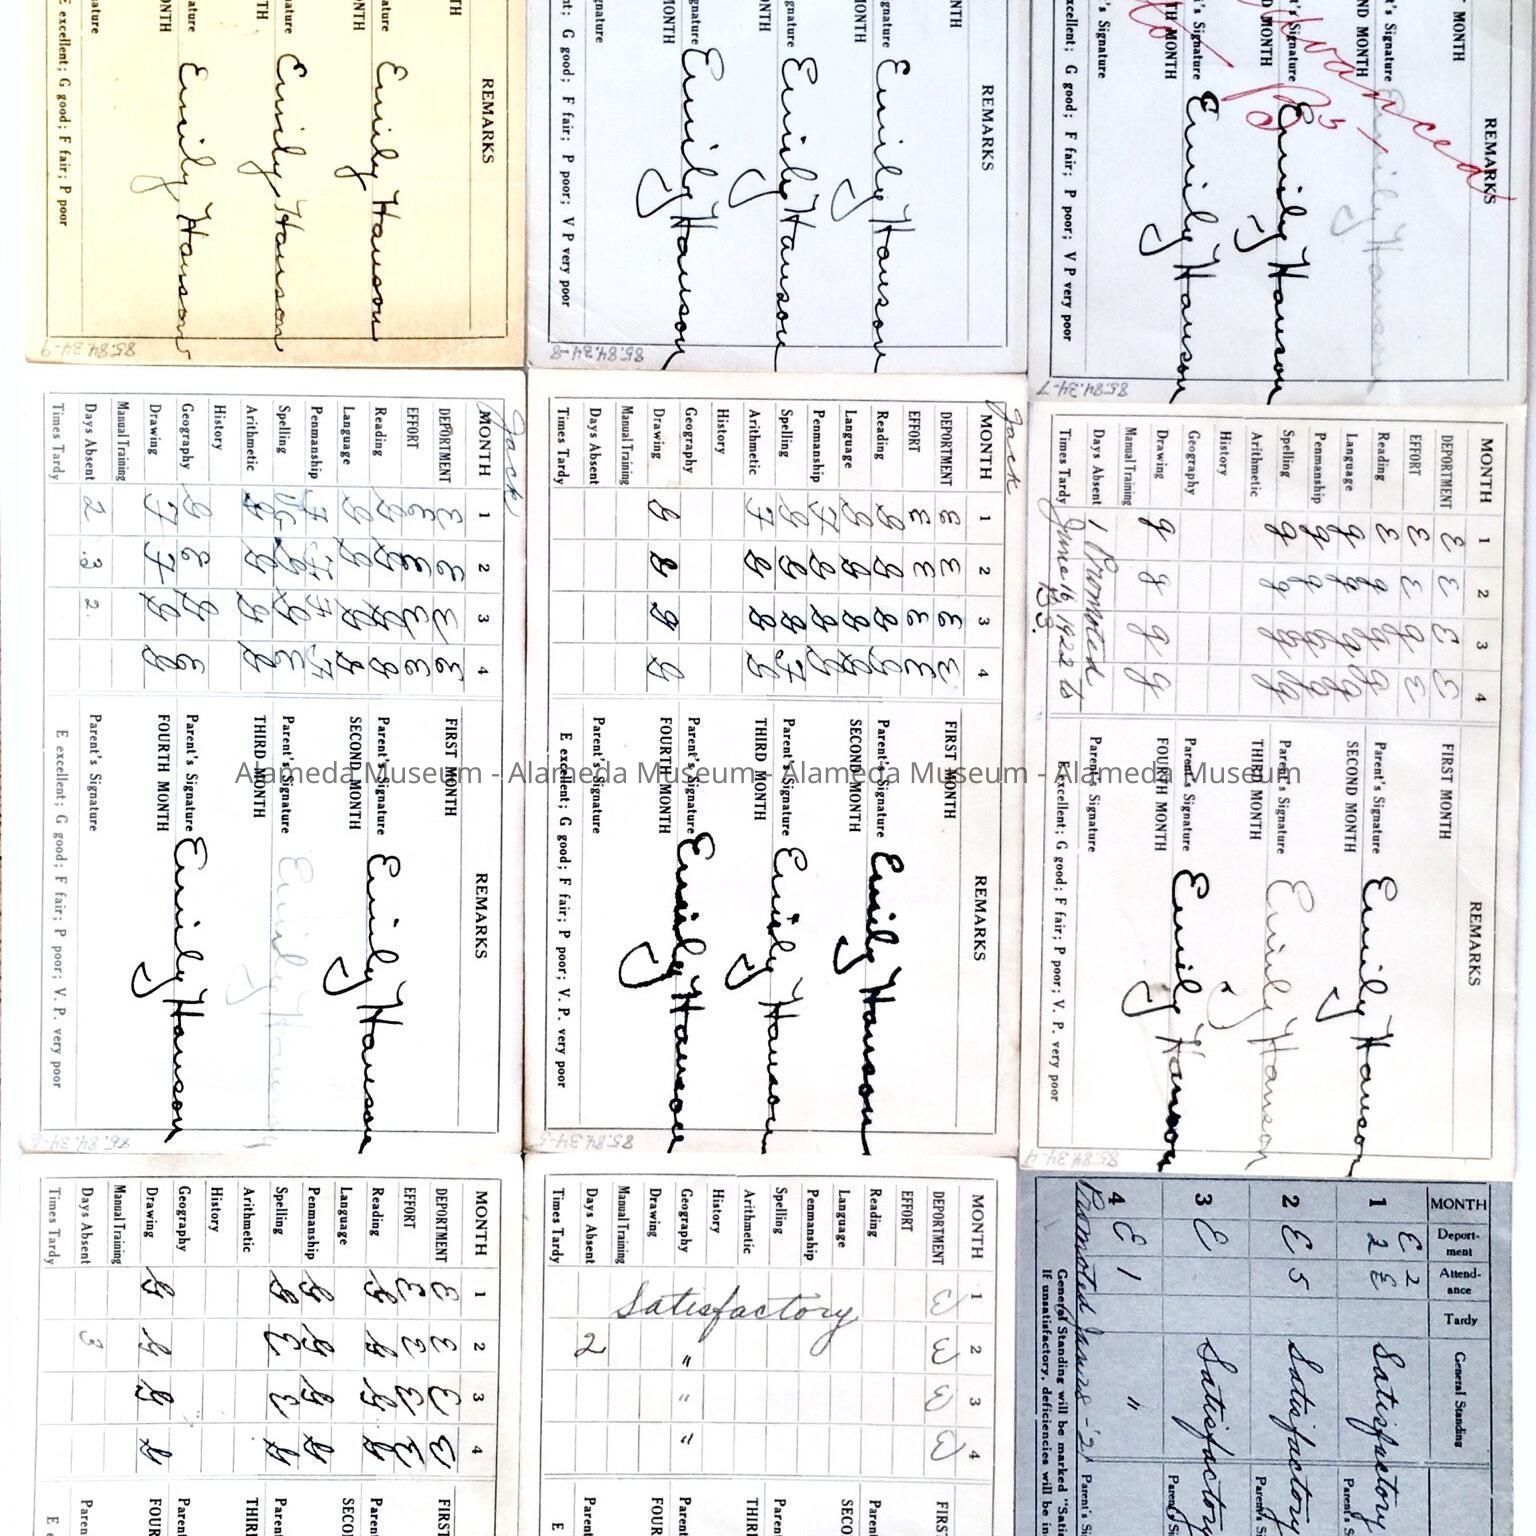 MONTH
nature
MONTH
nature
TH
ature
E excellent; G good; F fair; P poor
REMARKS
Emily Hanson
Emily Hanson
Emily Hanson
85.84.34-9
NTH
MONTH
gnature
MONTH
gnature
MONTH
gnature
nt; G good; F fair; P poor; V P very poor
REMARKS
Emily Hanson
Emily Hanson
Emily Hanson
85.84.34-8
T MONTH
t's Signature
ND MONTH
's Signature
D MONTH
's Signature
MONTH
's Signature
xcellent; G good; F fair; P poor; V P very poor
REMARKS
Advanced
Emily Hanson
Emily Hanson
Emily Hanson
85.84.34-7
Jack
MONTH 1 2 3 4
DEPORTMENT E E E E
EFFORT E E E E
Reading G G G G
Language G G G G
Penmanship F F F F
Spelling
Arithmetic G G G G
History
Geography G E G E
Drawing F F G G
Manual Training
Days Absent 2 3 2
Times Tardy
REMARKS
FIRST MONTH
Parent's Signature Emily Hanson
SECOND MONTH
Parent's Signature Emily Hanson
THIRD MONTH
Parent's Signature Emily Hanson
FOURTH MONTH
Parent's Signature
E excellent; G good; F fair; P poor; V. P. very poor
85.84.34-6
Jack
MONTH 1 2 3 4
DEPORTMENT E E E E
EFFORT E E E E
Reading G G G G
Language G G G G
Penmanship F G G G
Spelling G G G F
Arithmetic F G G G
History
Geography
Drawing G G G G
Manual Training
Days Absent
Times Tardy
REMARKS
FIRST MONTH
Parent's Signature Emily Hanson
SECOND MONTH
Parent's Signature Emily Hanson
THIRD MONTH
Parent's Signature Emily Hanson
FOURTH MONTH
Parent's Signature
E excellent; G good; F fair; P poor; V. P. very poor
85.84.34-5
MONTH 1 2 3 4
DEPORTMENT E E E E
EFFORT E E g E
Reading E g g g
Language g g g g
Penmanship g g g g
Spelling g g g g
Arithmetic
History
Geography
Drawing g g g g
Manual Training
Days Absent 1 Promoted
Times Tardy June 16, 1922 to
B3.
REMARKS
FIRST MONTH
Parent's Signature Emily Hanson
SECOND MONTH
Parent's Signature Emily Hanson
THIRD MONTH
Parent's Signature Emily Hanson
FOURTH MONTH
Parent's Signature
E Excellent; G good; F fair; P poor; V. P. very poor
85.84.34-4
Alameda Museum - Alameda Museum - Alameda Museum - Alameda Museum
MONTH 1 2 3 4
DEPORTMENT E E E E
EFFORT E E E E
Reading G G G G
Language
Penmanship G G G G
Spelling G E E G
Arithmetic
History
Geography
Drawing G G G G
Manual Training
Days Absent 3
Times Tardy
FIRST
Paren
SECO
Paren
THIRI
Paren
FOUR
Paren
E e
MONTH 1 2 3 4
DEPORTMENT E E E E
EFFORT
Reading
Language
Penmanship
Spelling
Arithmetic
History
Geography " " "
Satisfactory
Drawing
Manual Training
Days Absent 2
Times Tardy
FIRS
Paren
SECO
Paren
THIR
Paren
FOU
Paren
E
MONTH Deport-ment Attend-ance Tardy General Standing
1 E 2 Satisfactory
2 E
2 E 5 Satisfactory
3 E Satisfactory
4 E 1 "
Promoted
General Standing will be marked "Sati
If unsatisfactory, deficiencies will be in
Parent's S
Parent's S
Parent's S
Parent's Si